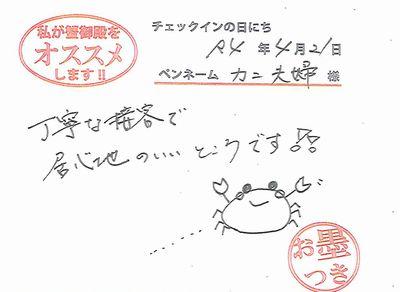 私が蟹御殿を
オススメ
します!!
チェックインの日にち
R4 年 4月21日
ペンネーム カニ夫婦 様
丁寧な接客で
居心地のいいところです!!
お墨
つき